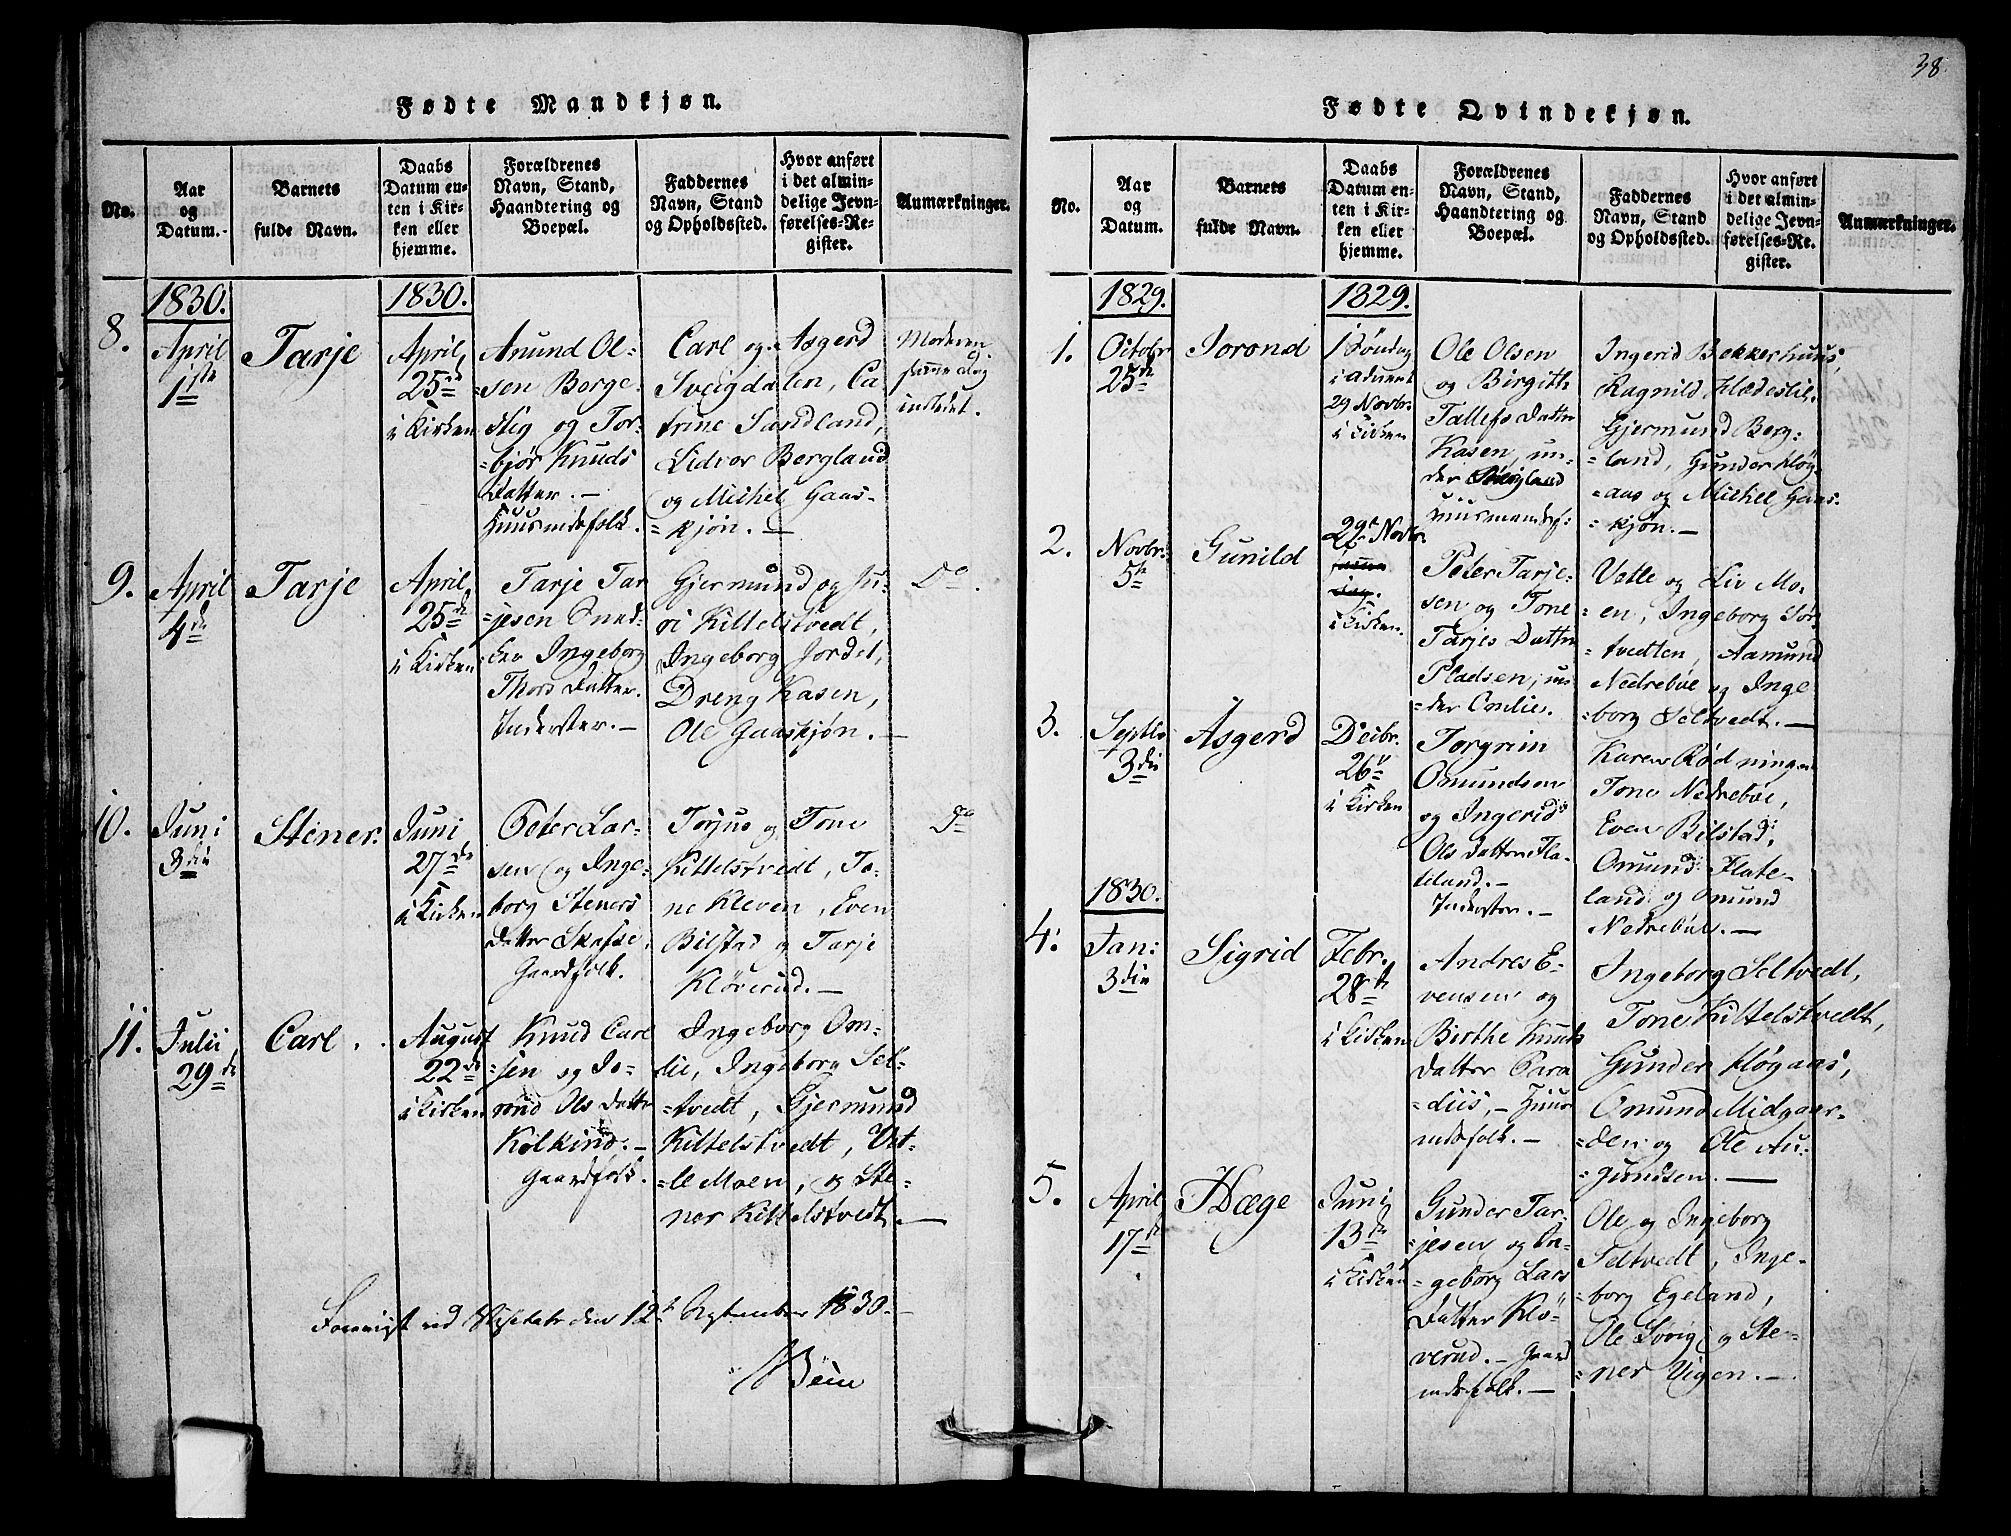 Fødte Mandkjøn.
No.
Aar
og
Datum.
Barnets
fulde Navn.
Daabs
Datum en-
ten i Kir-
ken eller
hjemme.
Forældrenes
Navn, Stand,
Haandtering og
Boepæl.
Faddernes
Navn, Stand
og Opholdssted.
Hvor anført
i det almin-
delige Jevn-
førelses-Re-
gister.
Anmærkninger.
1830.
1830.
8.
April
1ste
Tarje
April
25de
i Kirken
Anund Ol-
sen Borge-
stig og Tor-
=bjør Knuds
Datter. —
Huusmdsfolk.
Carl og Asgerd
Sveigdalen, Ca-
trine Sandland,
Lidvor Bergland
og Michel Gaas-
=kjøn. —
Moderen
samme Dag
indledet.
9.
April
4de
Tarje
April
25de
i Kirken
Tarje Tar
=jesen
Ingeborg
Thors Datter.
Inderster. —
Gjermund og Gu-
ri Kittelstvedt,
Ingeborg Jordet,
Dreng Kasen,
Ole Gaaskjøn. —
Do.
10.
Juni
3die
Stener.
Juni
27de
i Kirken
Peter Lar-
sen og Inge-
borg Steners
Datter Skafse.
Gaardfolk.
Torjus og Tone
Kittelstvedt, To-
ne Kleven, Even
Bilstad og Tarje
Kløverud. —
Do
11.
Julii
29de
Carl.
August
22de
i Kirken
Knud Carl
=sen og Jo-
rond Ols Datter
Kolkind. —
Gaardfolk.
Ingeborg Om-
lie, Ingeborg Sel-
=tvedt, Gjermund
Kittelstvedt, Vet-
=le Moen, og Ste-
ner Kittelstvedt. —
ved den 12te September 1830. —
38
Fødte Qvindekjøn.
No.
Aar
og
Datum.
Barnets
fulde Navn.
Daabs
Datum en-
ten i Kir-
ken eller
hjemme.
Forældrenes
Navn, Stand,
Haandtering og
Boepæl.
Faddernes
Navn, Stand
og Opholdssted.
Hvor anført
i det almin-
delige Jevn-
førelses-Re-
gister.
Anmærkninger.
1829.
1829.
1.
Octobr
25de
Jorond
1 Søndag
i Advent
29 Novbr.
i Kirken
Ole Olsen
og Birgith
Tallefs Datter
Kasen, un-
der Bergland
Huusmandsf:
Ingerid Bekkerhuus,
Ragnild Klædeslie.
Gjermund Berg-
=land, Gunder Høg-
=aas og Michel Gaas-
=kjøn. —
2.
Novbr.
5te
Gunild
29de Novbr.
i Kirken.
Peter Tarje-
sen og Tone
Tarjes Datter
Pladsen, un-
=der Omlie.
Vetle og Liv Mo-
en, Ingeborg Sør-
=tvedten, Aamund
Nedrebøe og Inge
=borg Seltvedt. —
3.
Septbr
3die
Asgerd
Decbr.
26de
i Kirken
Torgrim
Omundsen
og Ingerid
Ols Datter Fla-
teland. —
Inderster. —
Karen Rødningen
Tone Nedrebøe,
Even Bilstad,
Omund Flate-
land og Omund
Nedrebøe. —
1830.
4.
Jan:
3die
Sigrid
Febr.
28de
i Kirken
Andres E-
vensen og
Birthe Knuds
Datter Para
=diis, — Huus
mdsfolk. —
Ingeborg Seltvedt,
Tone Kittelstvedt,
Gunder Høgaas,
Omund Midgaar-
=den og Ole Au-
=gundsen. —
5.
April
17de
Hæge
Juni
13de
i Kirken
Gunder Tar-
=jesen og In-
=geborg Lars
Datter Klø-
verud. — Gaard
mdsfolk. —
Ole og Ingeborg
Seltvedt, Inge-
=borg Egeland,
Ole Sørig og Ste-
=ner Vigen. —